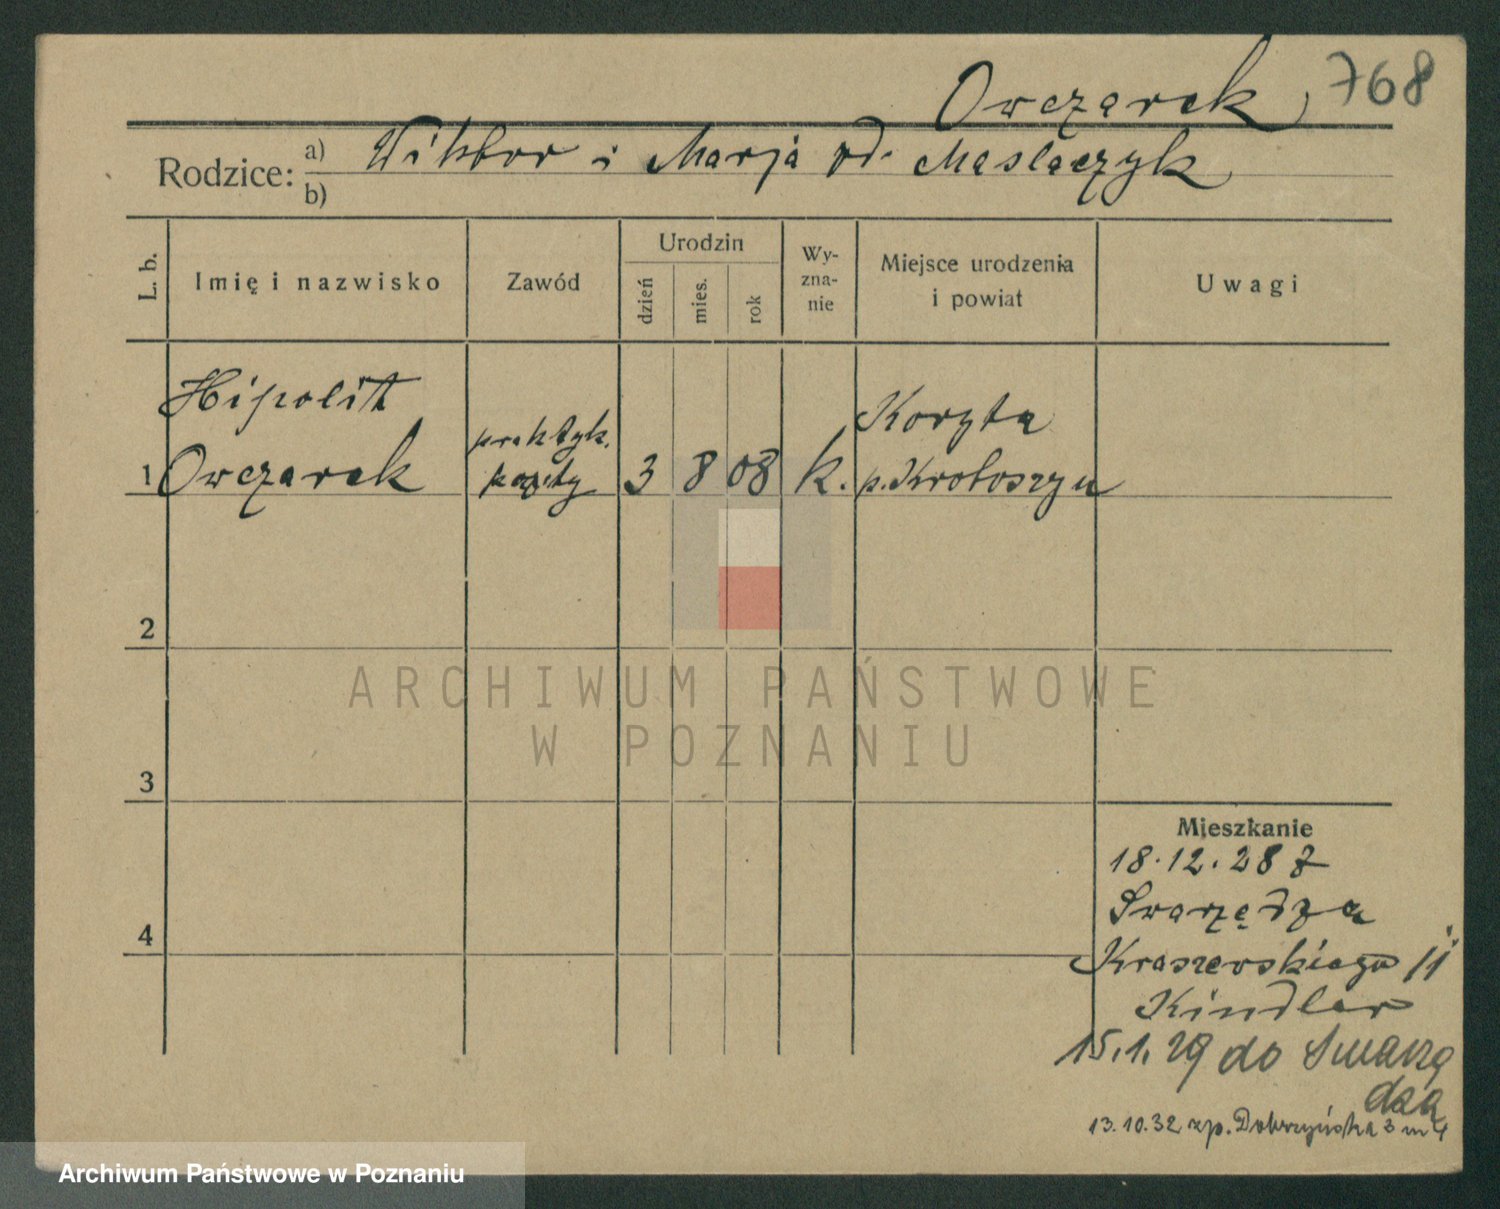 Owczarek 768
Rodzice: a) Wiktor i Marja od. Maslaczyk
b)
L. b. Imię i nazwisko Zawód Urodzin dzień mies. rok Wy-zna-nie Miejsce urodzenia i powiat Uwagi
Hipolit
praktyk. Koryta
1 Owczarek poczty 3 8 08 k. p. Krotoszyn
2
ARCHIWUM PAŃSTWOWE
W POZNANIU
3
Mieszkanie
18.12.28 z
Swarzędza
4
Kraszewskiego 11
Kindler
15.1.29 do Swarzę
dza
13.10.32 zp. Dobrzyńska 3 m 4
Archiwum Państwowe w Poznaniu